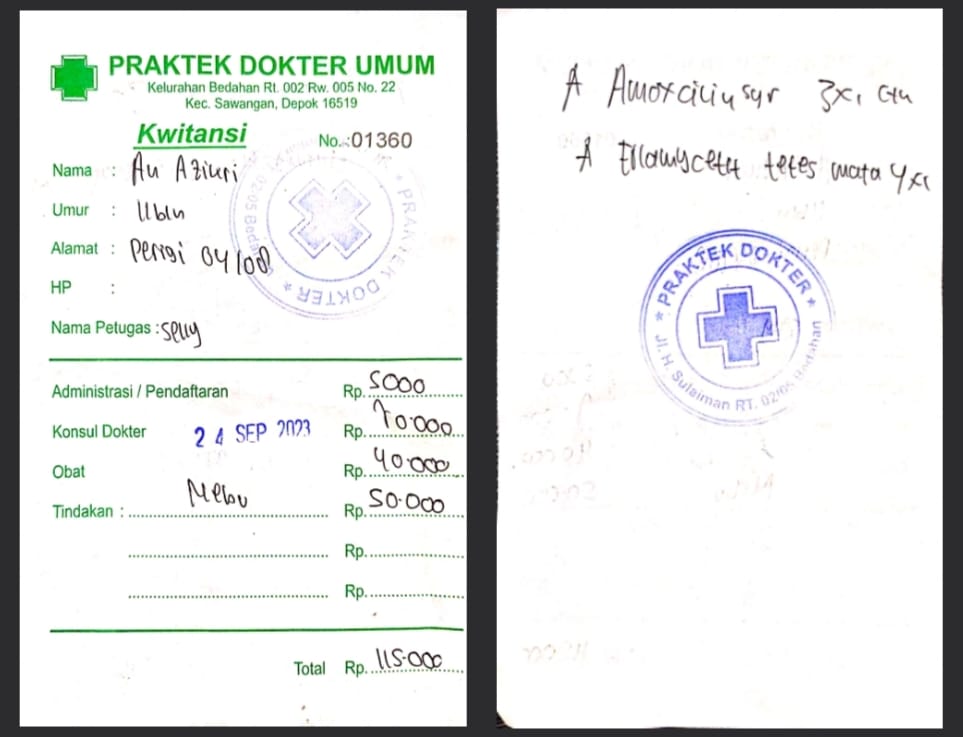 PRAKTEK DOKTER UMUM
Kelurahan Bedahan Rt. 002 Rw. 005 No. 22
Kec. Sawangan, Depok 16519
Kwitansi
No.:01360
Nama :
Umur : 11 bln
Alamat : Perigi 04/08
HP :
Nama Petugas : Selly
Administrasi / Pendaftaran Rp. 5000
Konsul Dokter 24 SEP 2023 Rp. 20.000
Obat Rp. 40.000
Tindakan : Nebu Rp. 50.000
Rp.
Rp.
Total Rp. 115.000
PRAKTEK DOKTER
Amoxcilin syr 3x1 cth
tetes mata 4x1
PRAKTEK DOKTER
Jl. H. Sulaiman RT. 02/05 Bedahan